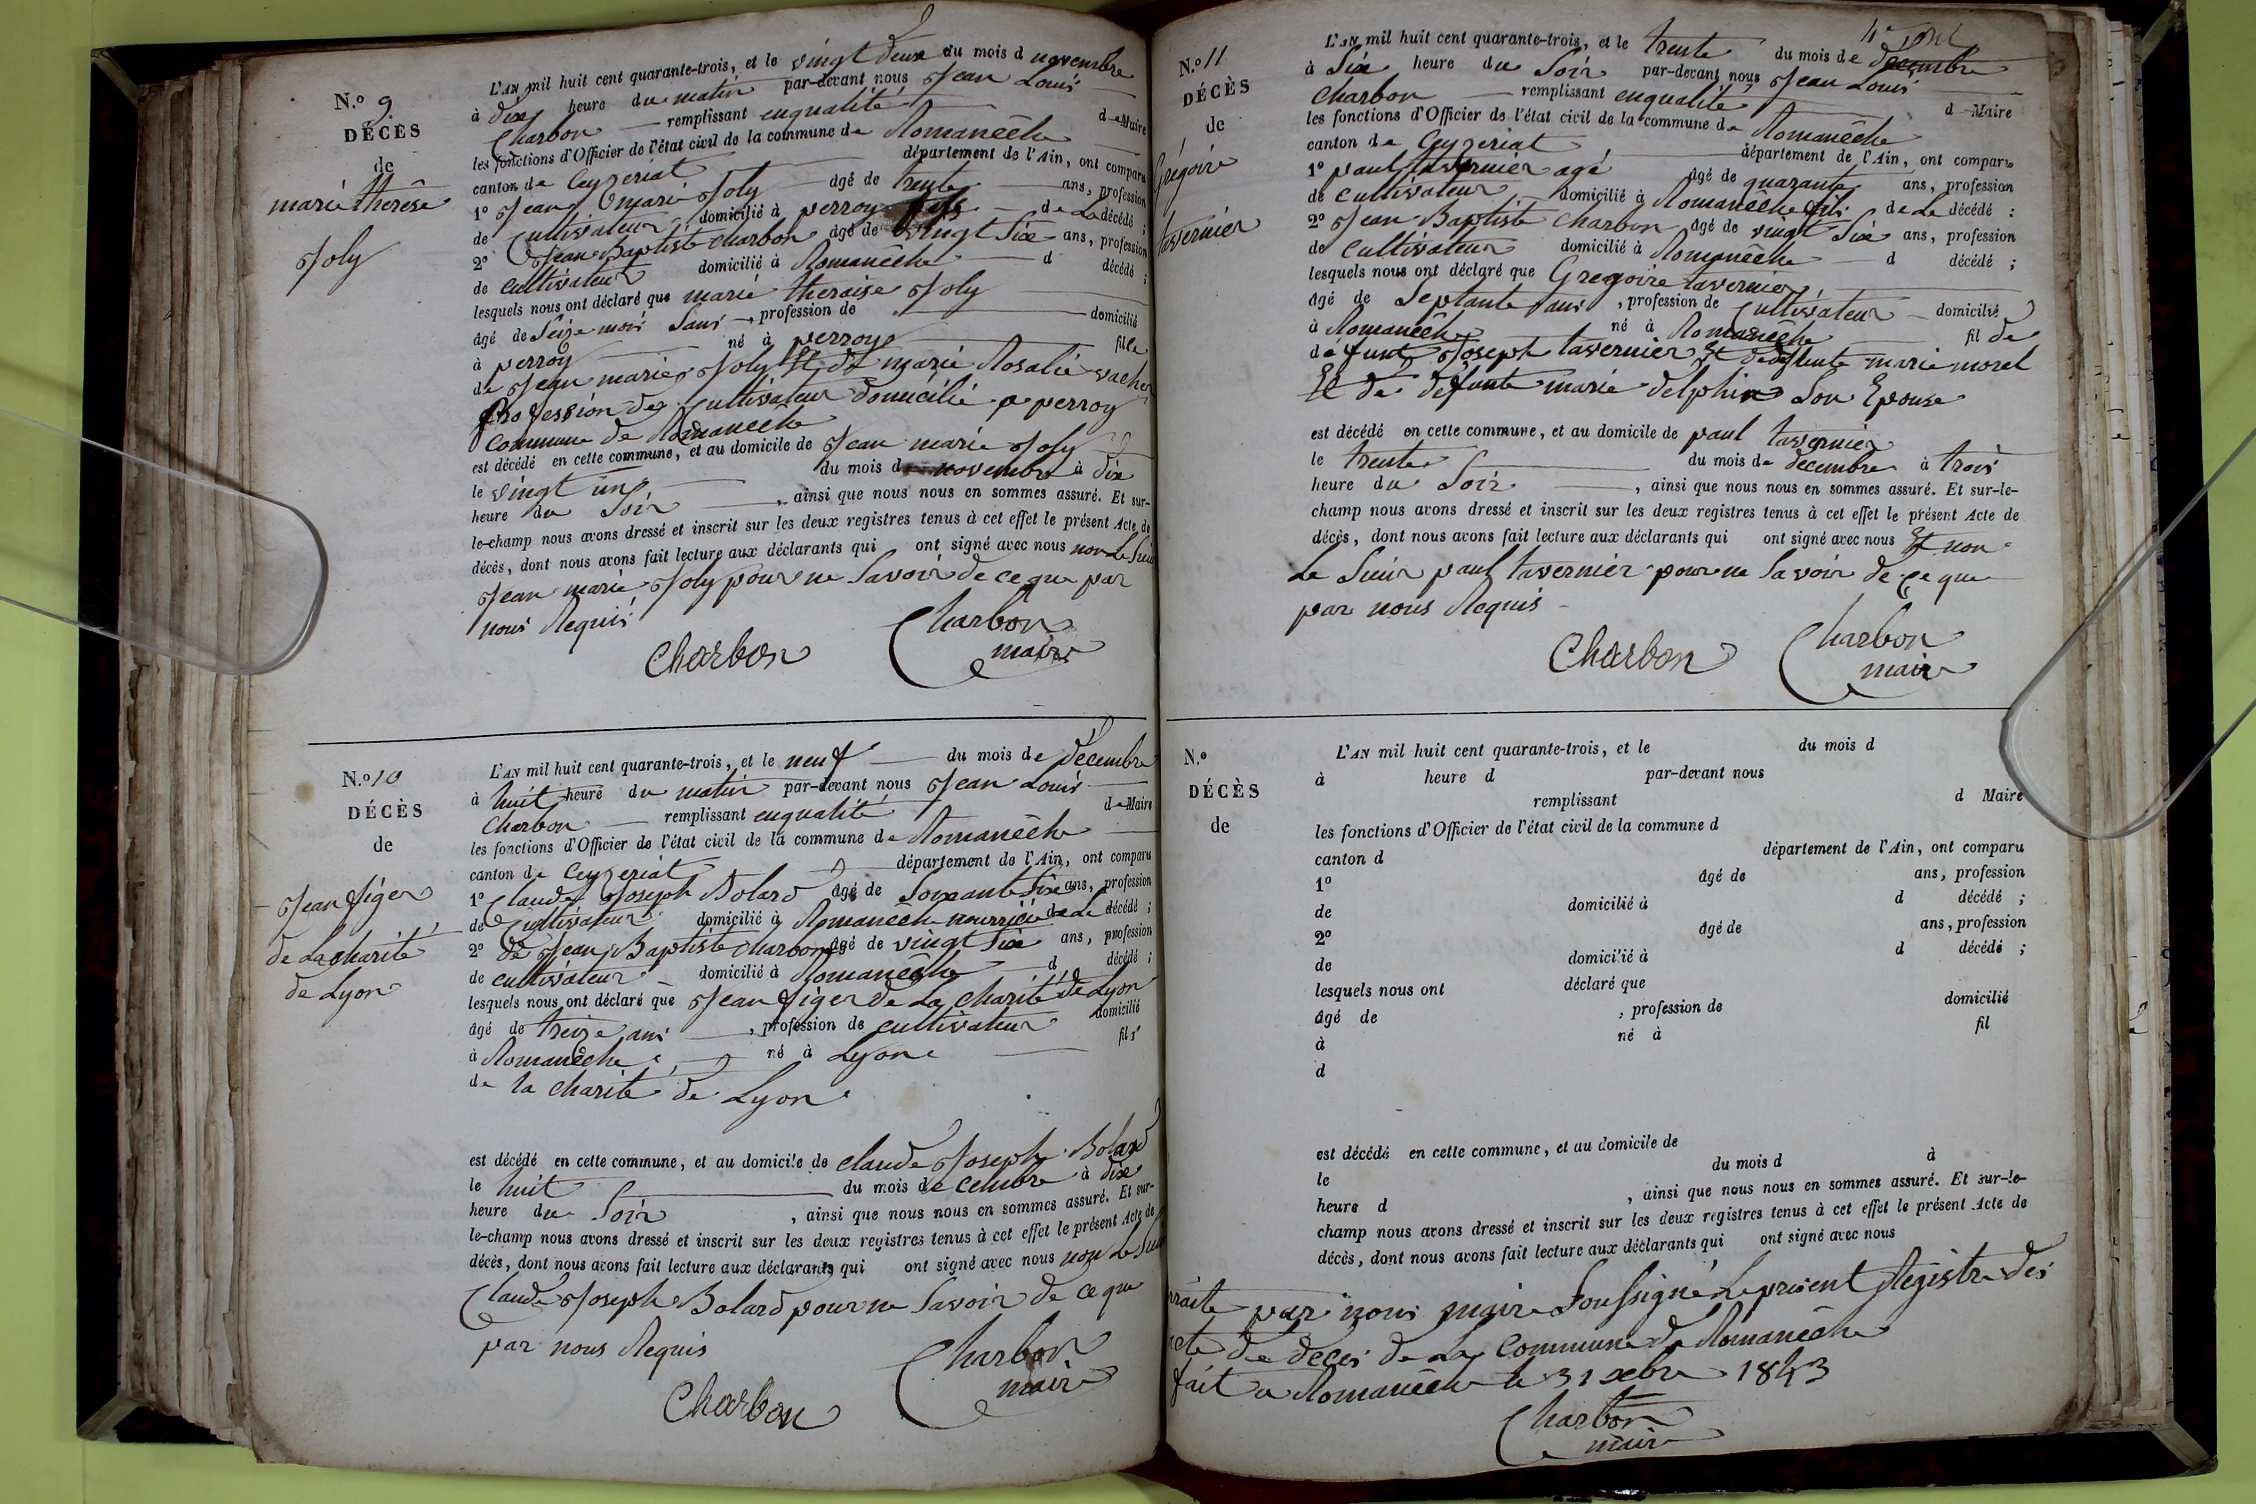 N.º 9
DÉCÈS
de
marie therèse
Joly
L'AN mil huit cent quarante-trois, et le vingt deux du mois d novembre
à dix heure du matin par-devant nous Jean Louis
Charbon remplissant enqualité d e Maire
les fonctions d'Officier de l'état civil de la commune de Romanêche
canton de Ceyzeriat département de l'Ain, ont comparu
1º Jean marie Joly âgé de trente ans, profession
de Cultivateur domicilié à perroy de La décédé ;
2º Jean Baptiste charbon âgé de vingt Six ans, profession
de cultivateur domicilié à Romanêche d décédé ;
lesquels nous ont déclaré que marie theraise Joly
âgé de Seize mois Sans , profession de domicilié
à perroy né à perroy fille
de Jean marie Joly Et de marie Rosalie vacher
Profession de Cultivateur domicilié a perroy
Commune de Romanêche
est décédé en cette commune, et au domicile de Jean marie Joly
le vingt un du mois de novembre à dix
heure du Soir , ainsi que nous nous en sommes assuré. Et sur-
le-champ nous avons dressé et inscrit sur les deux registres tenus à cet effet le présent Acte de
décès, dont nous avons fait lecture aux déclarants qui ont signé avec nous non Le Sieur
Jean marie Joly pour ne Savoir de ce que par
nous Requis
Charbon Charbon
maire
N.º 10
DÉCÈS
de
Jean figer
de La charité
de Lyon
L'AN mil huit cent quarante-trois, et le neuf du mois de Décembre
à huit heure du matin par-devant nous Jean Louis
Charbon remplissant enqualité d e Maire
les fonctions d'Officier de l'état civil de la commune de Romanêche
canton de Ceyzeriat département de l'Ain, ont comparu
1º Claude Joseph Bolard âgé de Soixante Six ans, profession
de Cultivateur domicilié à Romanêche nourricié de Le décédé ;
2º de Jean Baptiste charbon âgé de vingt Six ans, profession
de cultivateur domicilié à Romanêche d décédé ;
lesquels nous ont déclaré que Jean figer de La charité de Lyon
âgé de treize ans , profession de cultivateur domicilié
à Romanêche né à Lyon fils
de la charité de Lyon
est décédé en cette commune, et au domicile de claude Joseph Bolard
le huit du mois decembre à dix
heure du Soir , ainsi que nous nous en sommes assuré. Et sur-
le-champ nous avons dressé et inscrit sur les deux registres tenus à cet effet le présent Acte de
décès, dont nous avons fait lecture aux déclarants qui ont signé avec nous non Le Sieur
Claude Joseph Bolard pour ne Savoir de ce que
par nous Requis
Charbon Charbon
maire
N.º 11
DÉCÈS
de
Grégoire
tavernier
L'AN mil huit cent quarante-trois, et le trente du mois de décembre
à Six heure du Soir par-devant nous Jean Louis
Charbon remplissant enqualité d Maire
les fonctions d'Officier de l'état civil de la commune de Romanêche
canton de Ceyzeriat département de l'Ain, ont comparu
1º paul tavernier agé âgé de quarante ans, profession
de cultivateur domicilié à Romanêche fils de Le décédé ;
2º Jean Baptiste Charbon âgé de vingt Six ans, profession
de cultivateur domicilié à Romanêche d décédé ;
lesquels nous ont déclaré que Gregoire tavernier
âgé de Septante ans , profession de Cultivateur domicilié
à Romanêche né à Romanêche fil de
défunt Joseph tavernier Et de defunte marie morel
Et de défunte marie delphine Son Epouse
est décédé en cette commune, et au domicile de paul tavernier
le trente du mois de décembre à trois
heure du Soir , ainsi que nous nous en sommes assuré. Et sur-le-
champ nous avons dressé et inscrit sur les deux registres tenus à cet effet le présent Acte de
décès, dont nous avons fait lecture aux déclarants qui ont signé avec nous Et non
Le Sieur paul tavernier pour ne Savoir de ce que
par nous Requis
Charbon Charbon
maire
N.º
DÉCÈS
de
L'AN mil huit cent quarante-trois, et le du mois d
à heure d par-devant nous
remplissant d Maire
les fonctions d'Officier de l'état civil de la commune d
canton d département de l'Ain, ont comparu
1º âgé de ans, profession
de domicilié à d décédé ;
2º âgé de ans, profession
de domicilié à d décédé ;
lesquels nous ont déclaré que
âgé de , profession de domicilié
à né à fil
d
est décédé en cette commune, et au domicile de
le du mois d à
heure d , ainsi que nous nous en sommes assuré. Et sur-le-
champ nous avons dressé et inscrit sur les deux registres tenus à cet effet le présent Acte de
décès, dont nous avons fait lecture aux déclarants qui ont signé avec nous
par nous maire Soussigné Le présent Registre des
de deces de La Commune de Romanêche
fait a Romanêche le 31 xbre 1843
Charbon
maire